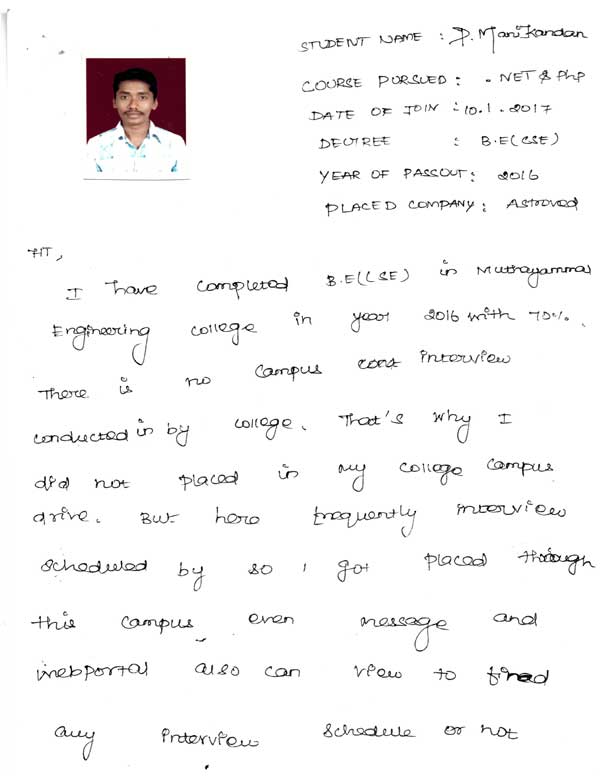 STUDENT NAME : P. Manikandan
COURSE PURSUED : . NET & PhP
DATE OF JOIN :- 10.1.2017
DEGREE : B.E(CSE)
YEAR OF PASSOUT : 2016
PLACED COMPANY : Astroved
HT,
I have completed B.E(CSE) in Muthayammal
Engineering college in year 2016 with 70%.
There is no campus interview
conducted in by college. That's why I
did not placed in my college campus
drive. But here frequently interview
scheduled by so I got placed through
this campus even message and
webportal also can view to find
any interview schedule or not